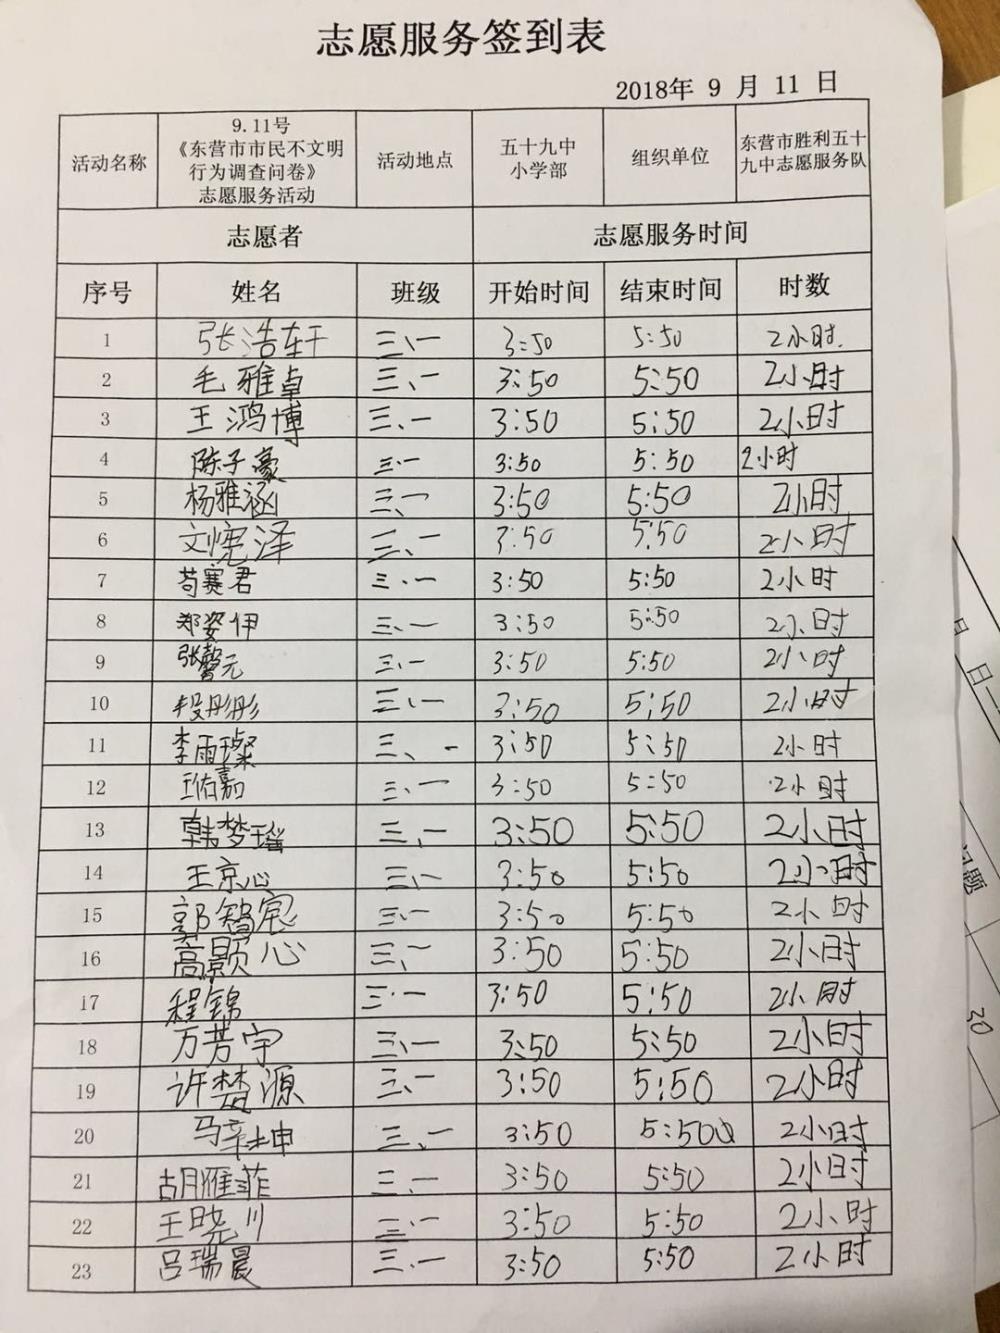 志愿服务签到表
2018年 9 月 11 日
活动名称 9.11号《东营市市民不文明行为调查问卷》志愿服务活动 活动地点 五十九中小学部 组织单位 东营市胜利五十九中志愿服务队
志愿者 志愿服务时间
序号 姓名 班级 开始时间 结束时间 时数
1 张浩轩 三、一 3:50 5:50 2小时.
2 毛雅卓 三、一 3:50 5:50 2小时
3 王鸿博 三、一 3:50 5:50 2小时
4 陈子豪 三·一 3:50 5:50 2小时
5 杨雅涵 三、一 3:50 5:50 2小时
6 文 泽 三、一 3:50 5:50 2小时
7 苟赛君 三、一 3:50 5:50 2小时
8 郑姿伊 三、一 3:50 5:50 2小时
9 张馨元 三、一 3:50 5:50 2小时
10 段彤彤 三、一 3:50 5:50 2小时
11 李雨璨 三、一 3:50 5:50 2小时
12 王佑嘉 三、一 3:50 5:50 2小时
13 韩梦瑶 三、一 3:50 5:50 2小时
14 王京心 三、一 3:50 5:50 2小时
15 郭 宸 三、一 3:50 5:50 2小时
16 高颢心 三、一 3:50 5:50 2小时
17 程锦 三·一 3:50 5:50 2小时
18 万芳宇 三、一 3:50 5:50 2小时
19 许楚源 三、一 3:50 5:50 2小时
20 马 坤 三、一 3:50 5:500 2小时
21 胡雁菲 三、一 3:50 5:50 2小时
22 王晓川 三、一 3:50 5:50 2小时
23 吕瑞晨 三、一 3:50 5:50 2小时
日
问题
30